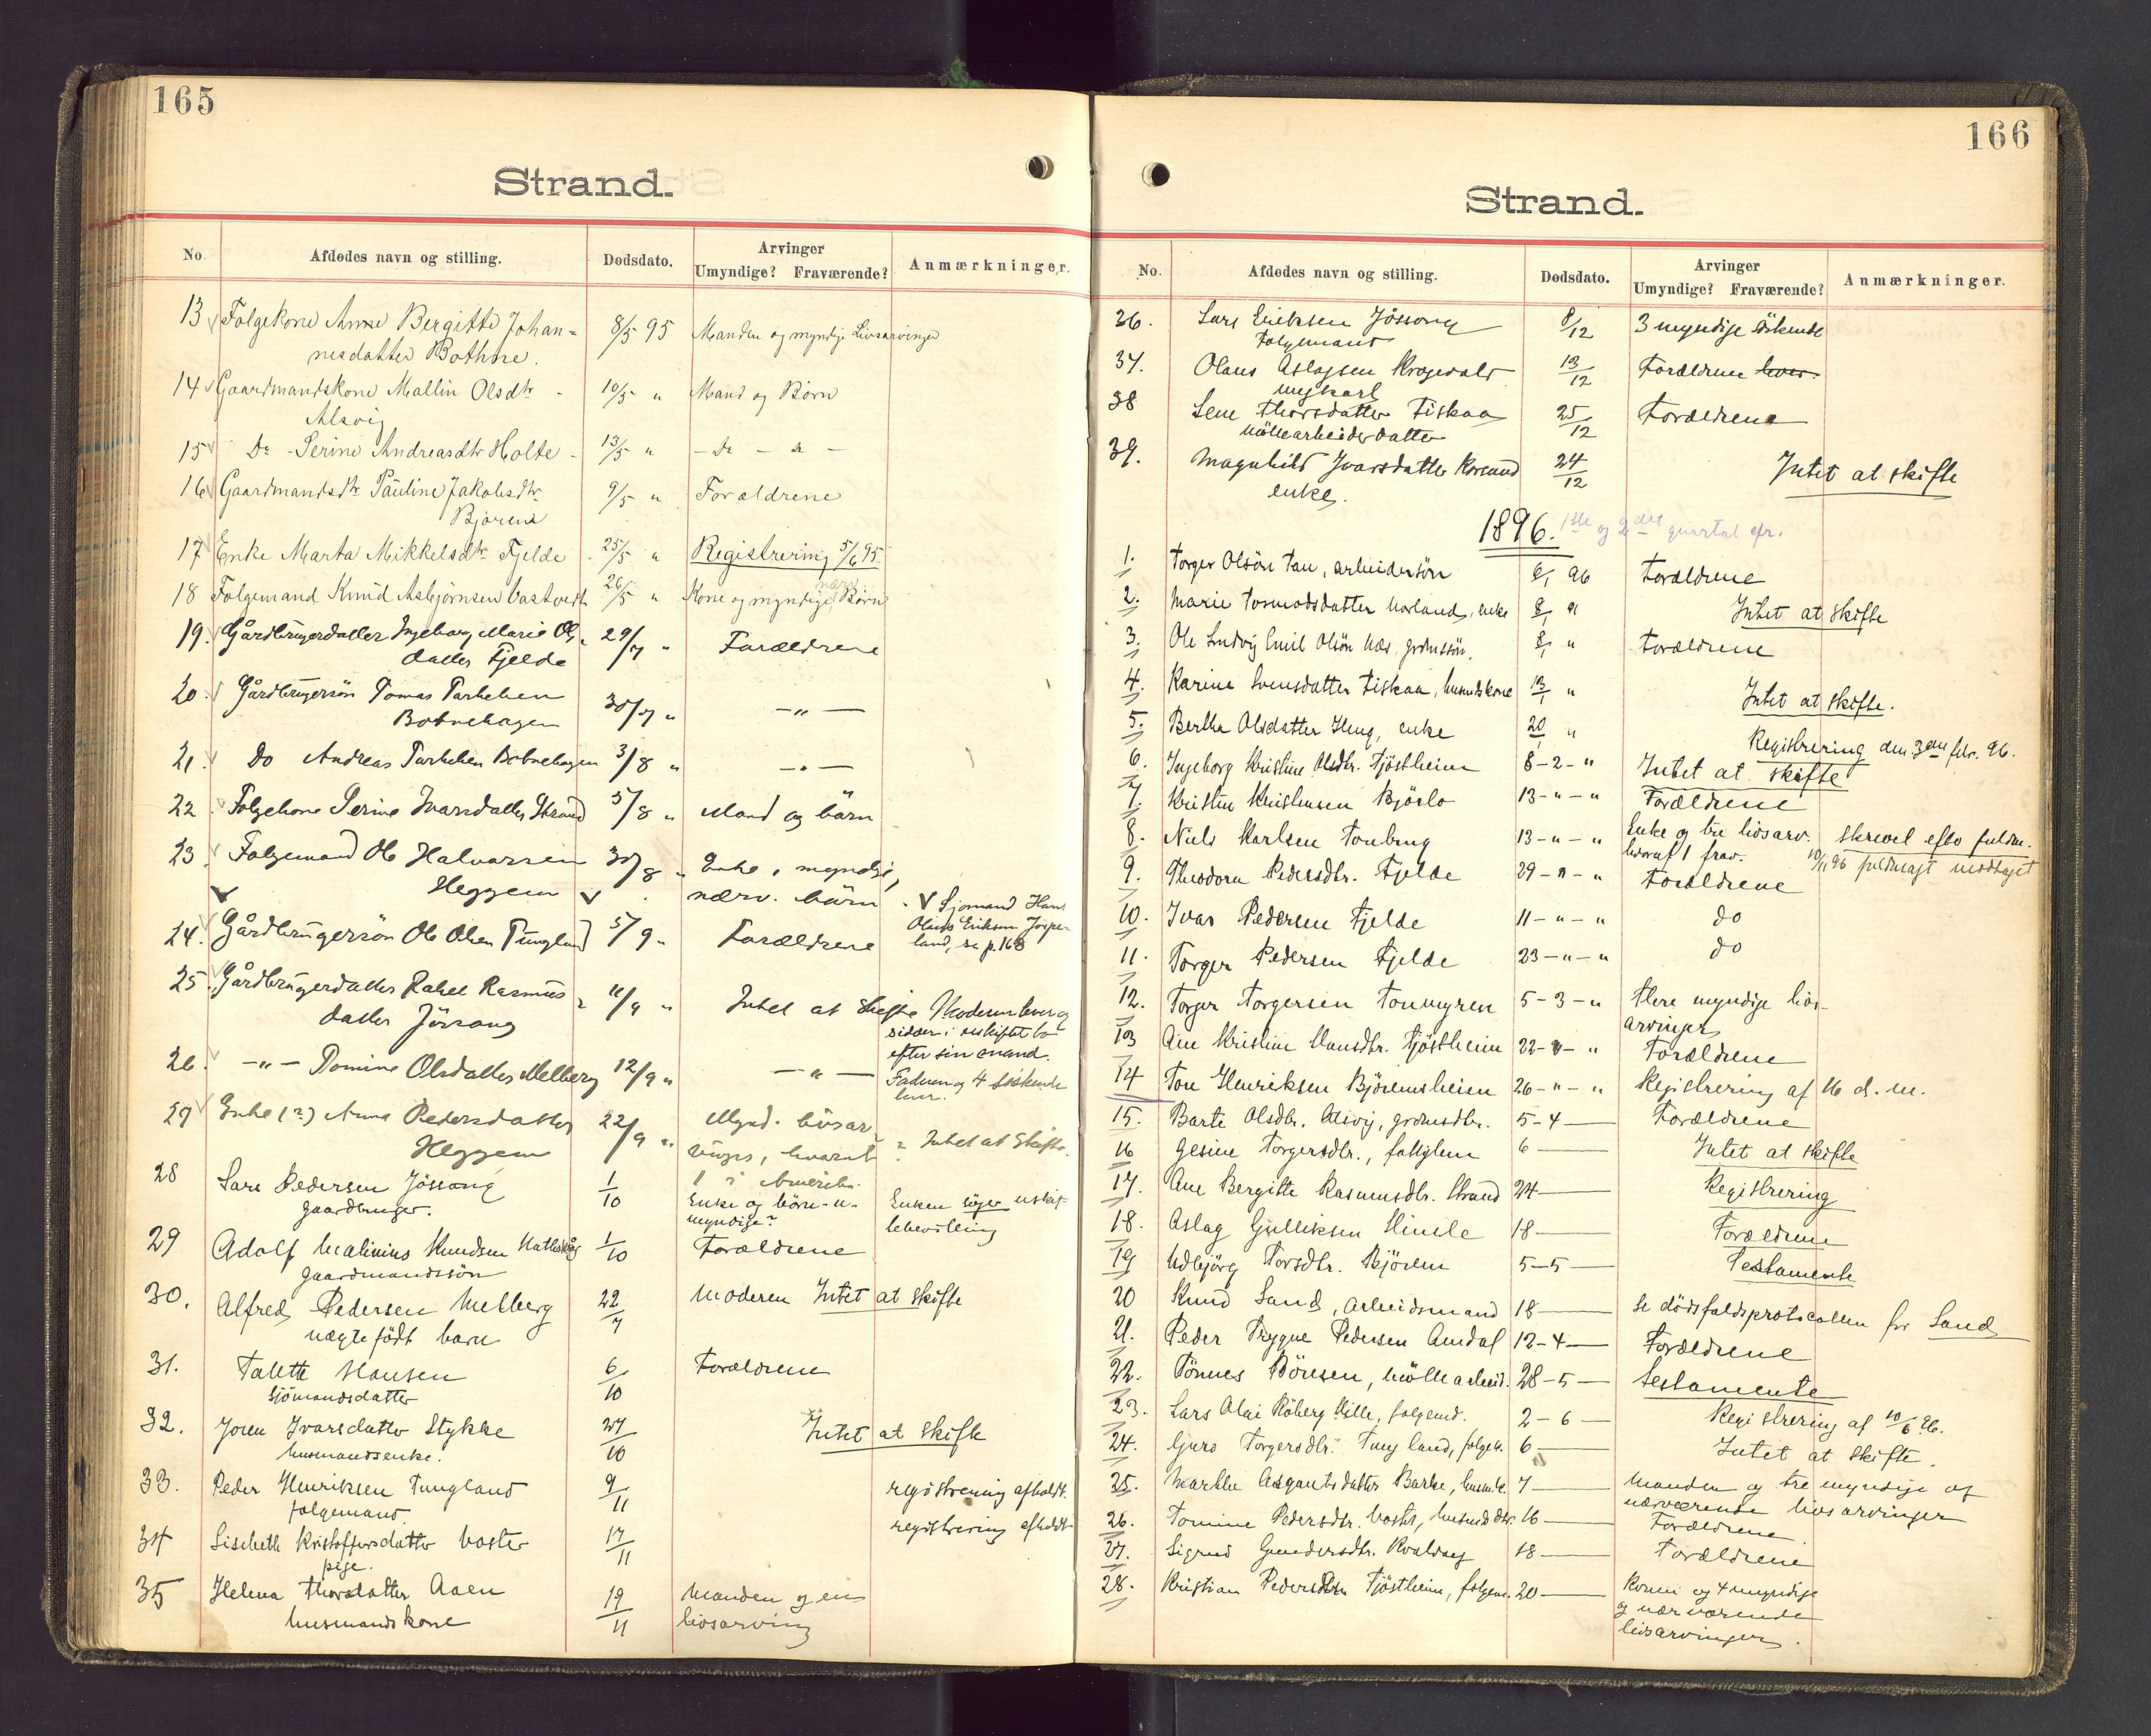 165
Strand.
No. Afdødes navn og stilling. Dødsdato. Arvinger Umyndige? Fraværende? Anmærkninger.
13 Folgekone Anne Bergitte Johan- 8/5 95 Manden og myndige Livsarvinger
nesdatter Bothne.
14 Gaardmandskone Mallin Olsdtr 10/5 " Mand og Børn
Alsvig
15 Do - Serine Andreasdtr Holte - 13/5 " - Do - do -
16 Gaardmandsdtr Pauline Jakobsdtr 9/5 " Forældrene
Bjøreni
17 Enke Marta Mikkelsdtr Fjelde 25/5 " Registrering 5/6 95.
18 Folgemand Knud Asbjørnsen Vastveit 26/5 " Kone og myndige nærv. Børn
19. Gårdbrugerdatter Ingeborg Marie Ols- 29/7 " Forældrene
datter Fjelde
20. Gårdbrugersøn Tomas Torkelsen 30/7 " -"-
Botnehagen
21. Do Andreas Torkelsen Botnehagen 3/8 " -"-
22. Folgekone Serine Ivarsdatter Strand 5/8 " Mand og børn
23. Folgemand Ole Halvorsen 30/8 " Enke, myndige,
Heggem nærv. børn. V Sjømand Hans
Olaus Eriksen Jørpe-
land, se p. 168
24. Gårdbrugersøn Ole Olsen Tungland 5/9 " Forældrene
25. Gårdbrugerdatter Rakel Rasmus- 11/9 " Intet at skifte Moderen lever og
datter Jössang sidder i uskiftet bo
efter sin mand.
26. -"- Tomine Olsdatter Melberg 12/9 " -"- Faderen og 4 Söskende
lever.
27 Enke (?) Anna Pedersdatter 22/9 " Mynd. livsar-
Heggem vinger, hvoraf ? Intet at skifte.
1 i Amerika.
28 Lars Pedersen Jössang 1/10 Enke og börn - u- Enken söger uskif-
gaardbruger. myndige? tebevilling
29 Adolf Malinius Knudsen 1/10 Forældrene
gaardmandssön
30. Alfred Pedersen Melberg 22/7 Moderen Intet at skifte
uægte födt barn
31. Talette Hansen 6/10 Forældrene
sjömandsdatter
32. Joren Ivarsdatter Stykke 27/10 Intet at skifte
husmandsenke.
33. Peder Henriksen Tungland 9/11 registrering afholdt.
folgemand.
34 Lisebeth Kristoffersdatter Voster 17/11 registrering afholdt
pige.
35 Helena Thorsdatter Aaen 19/11 Manden og en
husmandskone livsarving
166
Strand.
No. Afdødes navn og stilling. Dødsdato. Arvinger Umyndige? Fraværende? Anmærkninger.
36. Lars Eriksen Jössang 8/12 3 myndige söskende
folgemand
37. Olaus Aslagsen Krogevold 13/12 Forældrene lever.
ungkarl
38 Lene Thorsdatter Fiskaa 25/12 Forældrene
möllearbeiderdatter
39. Magnhild Ivarsdatter 24/12 Intet at skifte
enke.
1896. 1ste og 2det quartal efr.
1. Torger Olsön Tau, arbeidersön 6/1 96 Forældrene
2. Marie Tormodsdatter Norland, enke 8/1 " Intet at skifte
3. Ole Ludvig Emil Olsön Næs, grdmssön. 8/1 " Forældrene
4. Karine Svensdatter Fiskaa, husmdskone 13/1 " Intet at skifte.
5. Bertha Olsdatter Heng, enke 20/1 " Registrering den 3die febr. 96.
6. Ingeborg Kristine Olsdtr. Tjöstheim 8-2-" Intet at skifte
7. Kristen Kristensen Bjöslo 13-"-" Forældrene
8. Niels Karlsen Tonberg 13-"-" Enke og tre livsarv. Skrevet efter fuldm.
hvoraf 1 frav. 10/11 96 fuldmagt modtaget
9. Theodora Pedersdtr. Fjelde 29-"-" Forældrene
10. Ivar Pedersen Fjelde 11-"-" do
11. Torger Pedersen Fjelde 23-"-" do
12. Torger Torgersen Tonmyren 5-3-" Flere myndige livs-
arvinger
13 Ane Kristine Hansdtr. Tjöstheim 22-3-" Forældrene
14 Ton Henriksen Björemsheim 26-"-" Registrering af 16 d. m.
15. Barte Olsdtr. Alsvig, grdmsdtr. 5-4— Forældrene
16 Gesine Torgersdtr., fattiglem 6— Intet at skifte
17. Ane Bergitte Rasmusdtr. Strand 24— Registrering
18. Aslag Gulliksen Himle 18— Forældrene
19 Udbjörg Torsdtr. Björeni 5-5— Testamente
20 Knud Sand, arbeidsmand 18— Se dödsfaldsprotocollen for Sand
21. Peder Trygve Pedersen Amdal 12-4— Forældrene
22. Tönnes Börresen, möllearbeid. 28-5— Testamente
23. Lars Olai Roberg Hille, folgemd. 2-6— Registrering af 10/6 96.
24. Guro Torgersdtr. Tungland, folgek. 6— Intet at skifte.
25. Marthe Asgautsdatter Barke, husmk. 7— Manden og tre myndige og
nærværende livsarvinger
26. Tomine Pedersdtr. Voster, husmdsdtr. 16— Forældrene
27. Sigrud Gundersdtr. Kvalvåg 18— Forældrene
28. Kristian Pedersen Tjöstheim, folgem. 20— Konen og 4 myndige
og nærværende
livsarvinger.